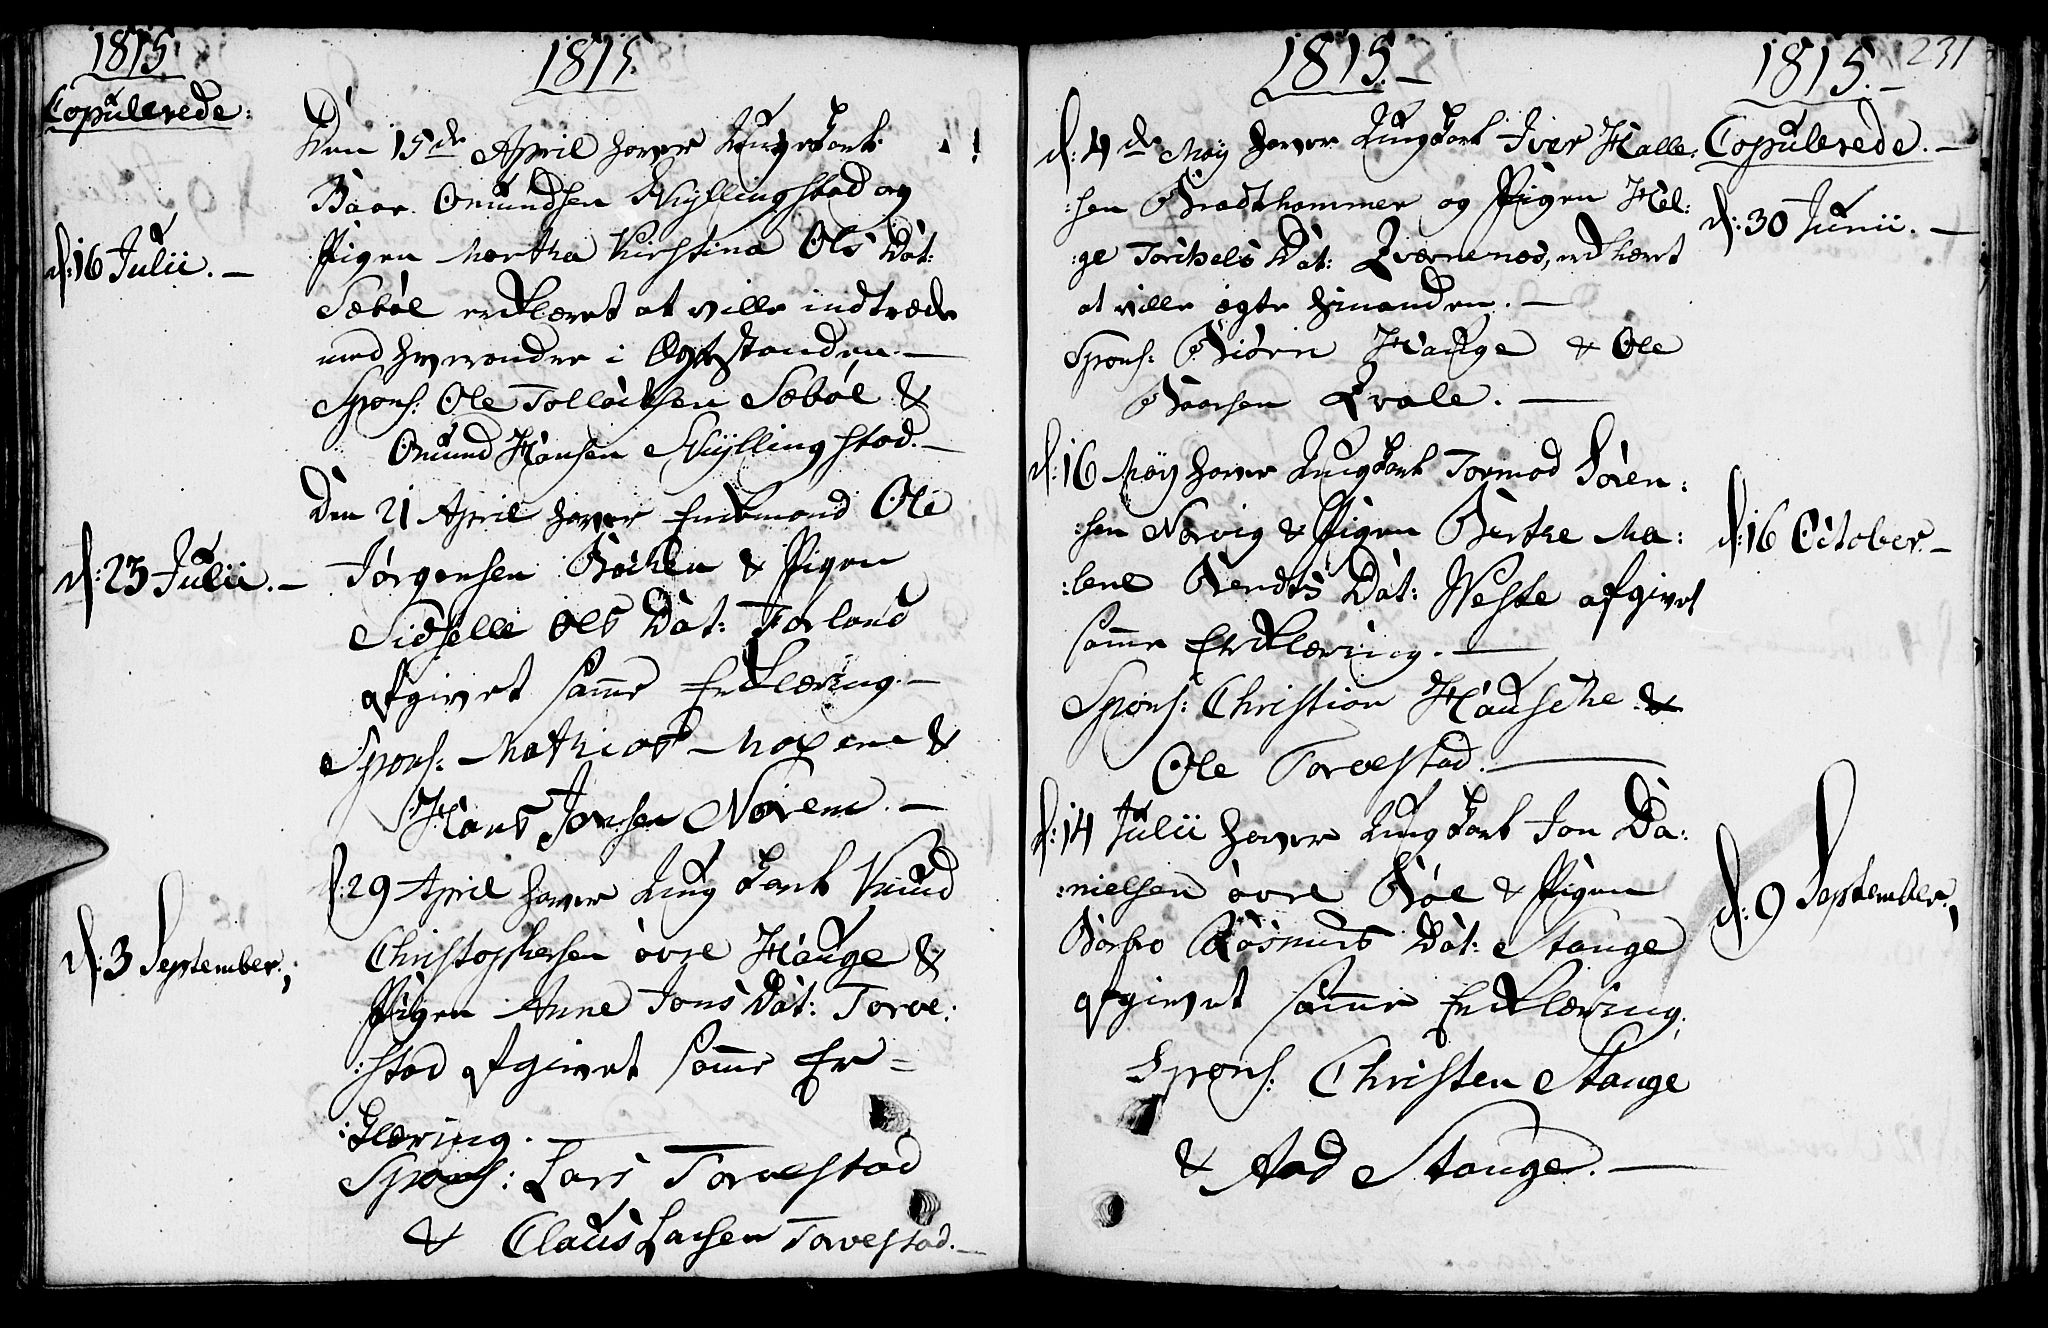 1815.
Copulerede:
d: 16 Julii. —
d: 23 Julii. —
d: 3 September.
1815.
Den 15de April haver Ungkarl
Baar Omundsen Kyllingstad og
Pigen Martha Kirstina Ols Dat:
Sæbøe erklæret at ville indtræde
med hverandre i Ægtestanden. —
Spons: Ole Tollachsen Sæbøe &
Omund Hansen Kyllingstad. —
Den 21 April haver Enkemand Ole
Jørgensen & Pigen
Sidselle Ols Dat: Førland
afgivet samme Erklæring. —
Spons: Mathias &
Hans Jensen Norem. —
d: 29 April haver Ungkarl Knud
Christophersen øvre Hauge &
Pigen Anne Jons Dat: Torve:
:stad afgivet samme Er=
:klæring. —
Spons: Lars Torvestad
& Claus Larsen Torvestad. —
1815. —
d: 4de May haver Ungkarl Iver Halle:
:sen Bradthammer og Pigen Hel:
:ge Torchels Dat: Qværnenæs, erklært
at ville ægte hinanden. —
Spons: Biørn Hauge & Ole
Baarsen Qvale. —
d: 16 May haver Ungkarl Tormod Søren:
:sen Nørvig & Pigen Berthe Ma:
:lene Bendts Dat: Weste afgivet
samme Erklæring. —
Spons: Christian Hausche &
Ole Torvestad. —
d: 14 Julii haver Ungkarl Jon Da:
:nielsen øvre Bøe & Pigen
Barbro Rasmus Dat: Stange
afgivet samme Erklæring.
Spons: Christen Stange
& Aad Stange. —
1815. —
231
Copulerede. —
d: 30 Junii. —
d: 16 October. —
d: 9 September.